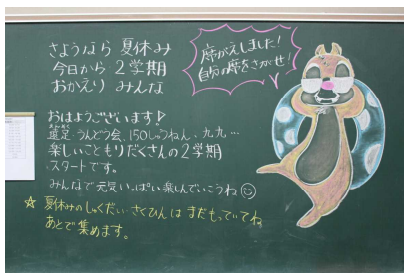 さようなら 夏休み
今日から 2学期
おかえり みんな
席がえしました!
自分の席をさがせ!
おはようございます♪
えんそく
遠足、うんどう会、150しゅうねん、九九…
楽しいこともりだくさんの2学期
スタートです。
みんなで元気いっぱい楽しんでいこうね
☆ 夏休みのしゅくだい・さくひんは まだもっていてね。
あとで集めます。